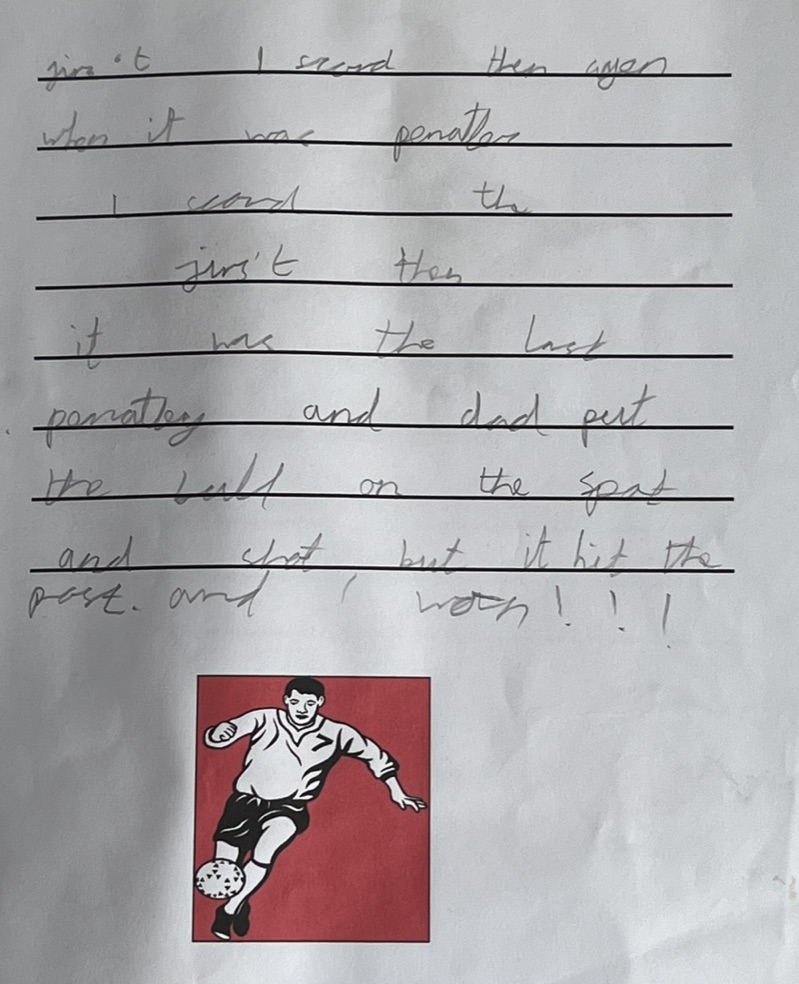 firs't I scord then agen
when it was penatley
I scord the
firs't then
it was the last
penatley and dad put
the ball on the spot
and shot but it hit the
post. and i won!!!
7